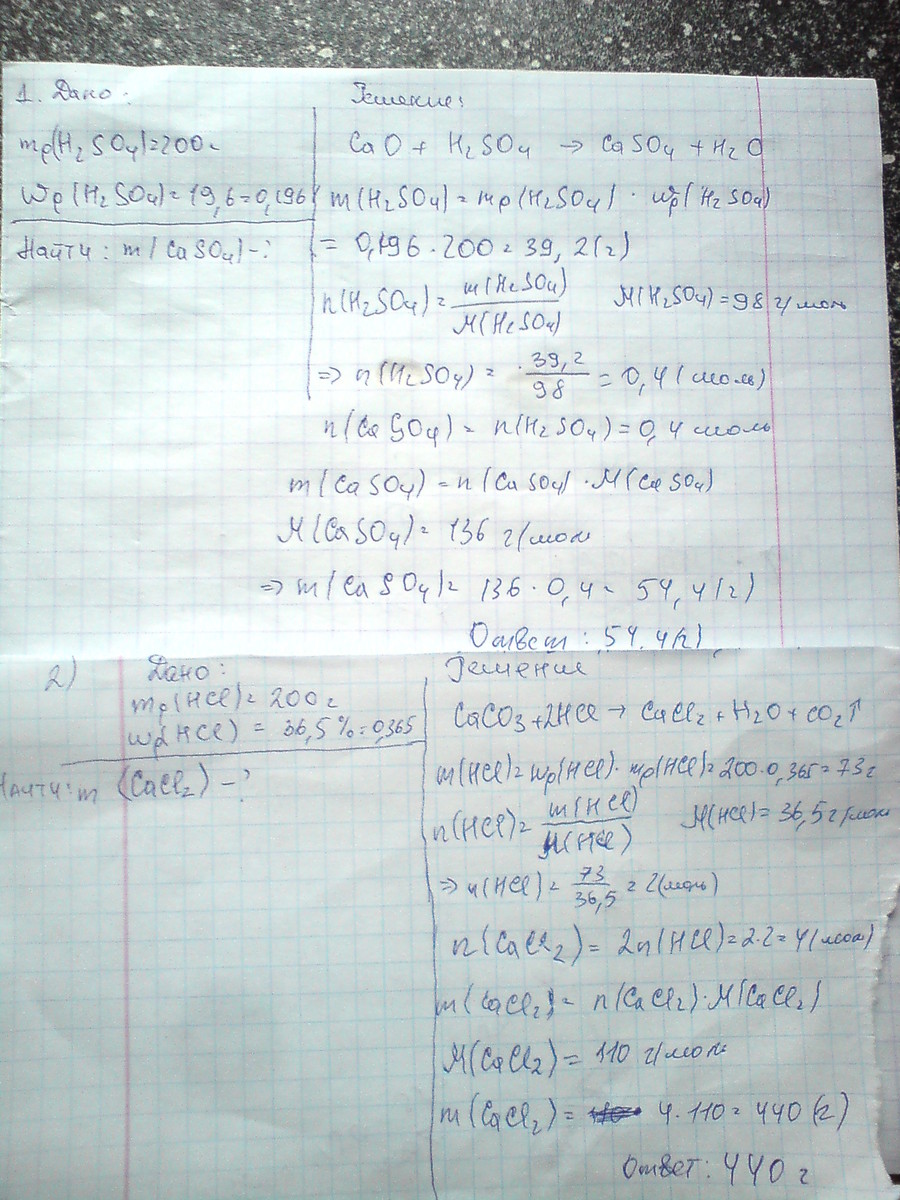 1. Дано:
mр(H2SO4)=200г
Wр(H2SO4)=19,6=0,196
Найти: m(CaSO4)-?
Решение:
CaO + H2SO4 → CaSO4 + H2O
m(H2SO4)=mр(H2SO4) · wр(H2SO4)
= 0,196·200=39,2(г)
n(H2SO4)= m(H2SO4)/M(H2SO4) M(H2SO4)=98 г/моль
=> n(H2SO4) = 39,2/98 = 0,4(моль)
n(CaSO4) = n(H2SO4) = 0,4 моль
m(CaSO4) = n(CaSO4) · M(CaSO4)
M(CaSO4)= 136 г/моль
=> m(CaSO4)= 136·0,4= 54,4(г)
Ответ: 54,4(г)
2) Дано:
mр(HCl)=200г
wр(HCl) = 36,5%=0,365
Найти: m (CaCl2) -?
Решение
CaCO3+2HCl → CaCl2+H2O+CO2↑
m(HCl)=wр(HCl)·mр(HCl)=200·0,365=73г
n(HCl)= m(HCl)/M(HCl) M(HCl)=36,5г/моль
=> n(HCl)= 73/36,5 = 2(моль)
n(CaCl2) = 2n(HCl)=2·2=4(моль)
m(CaCl2)= n(CaCl2)·M(CaCl2)
M(CaCl2) = 110 г/моль
m(CaCl2) = 4·110=440(г)
Ответ: 440 г